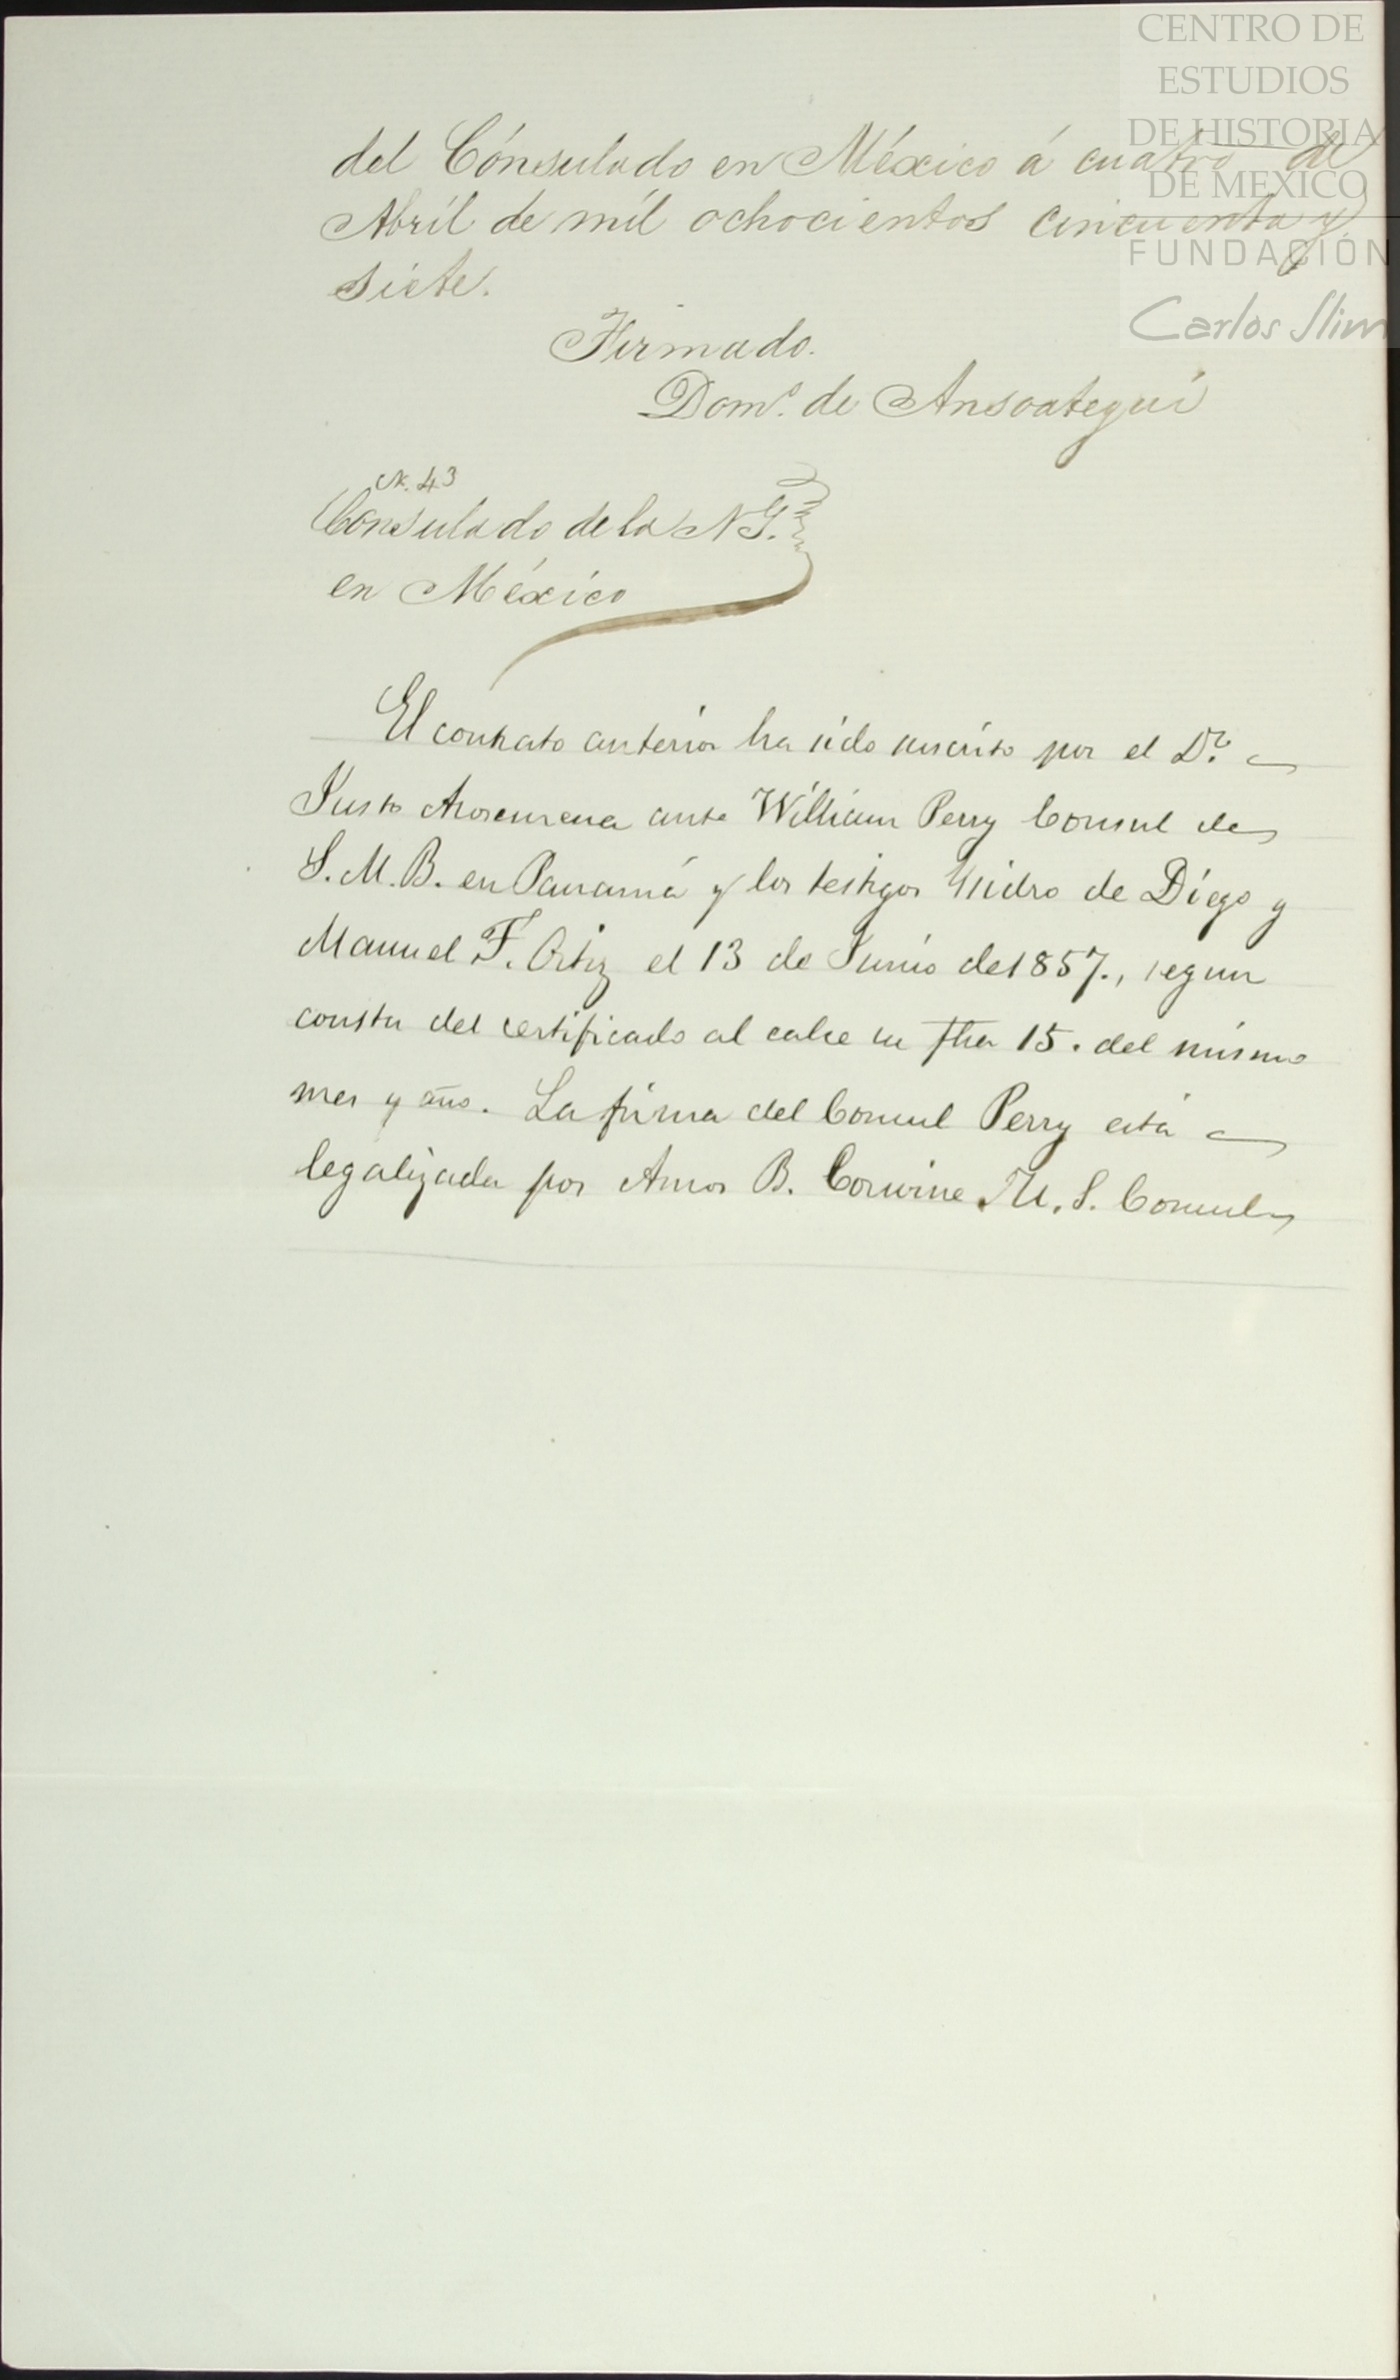 CENTRO DE
ESTUDIOS
DE HISTORIA
DE MEXICO
FUNDACIÓN
Carlos Slim
del Cónsulado en México á cuatro de
Abril de mil ochocientos cincuenta y
siete.
Firmado.
Domº. de Ansoategui
N. 43
Consulado de la N. G.
en México
El contrato anterior ha sido suscrito por el Dr.
Justo Arosemena ante William Perry Consul de
S. M. B. en Panamá y los testigos Ysidro de Diego y
Manuel F. Ortiz el 13 de Junio de 1857., segun
consta del certificado al calce su fha 15. del mismo
mes y año. La firma del Consul Perry está
legalizada por Amos B. Corwine U. S. Consul